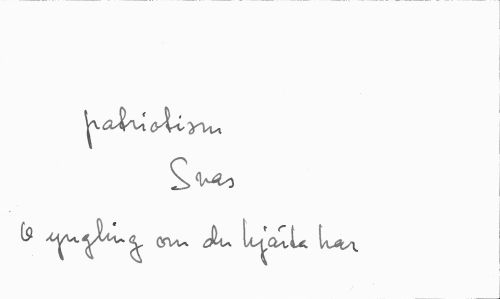 patriotism
Snas
O yngling om du hjärta har